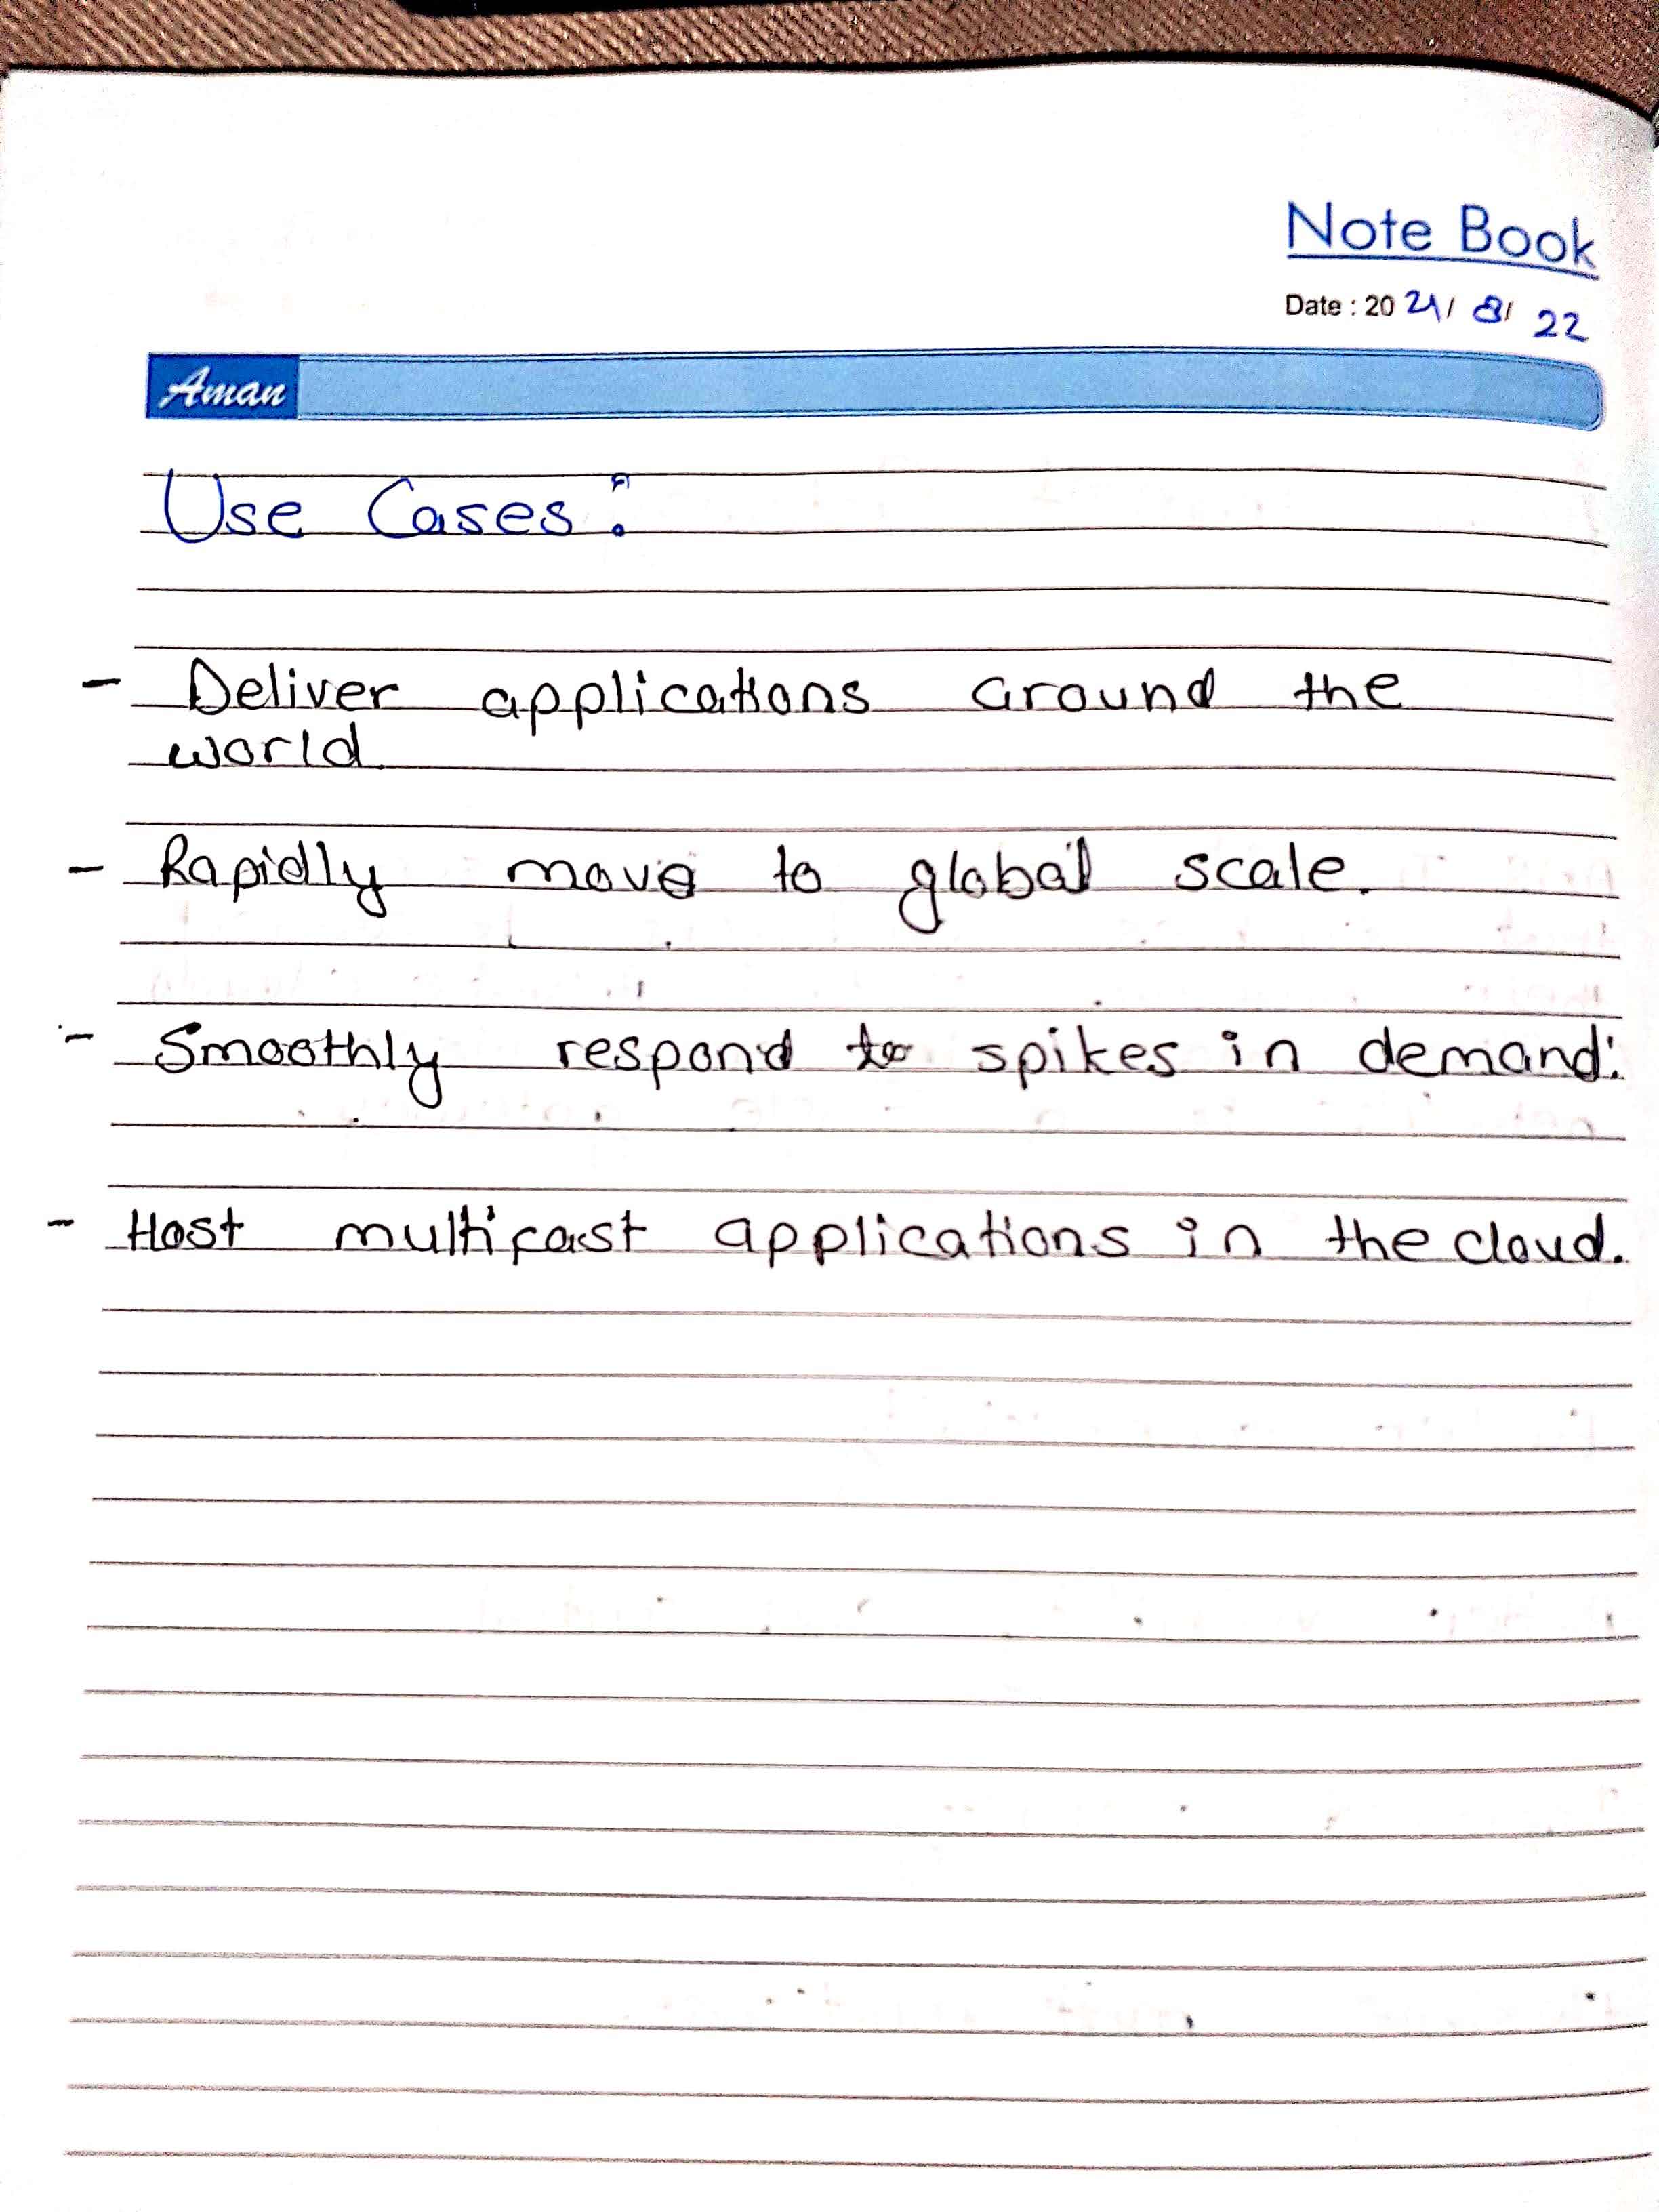 Note Book
Date : 20 21/ 8/ 22
Aman
Use Cases:
- Deliver applications around the
world.
- Rapidly move to global scale.
- Smoothly respond to spikes in demand.
- Host multicast applications in the cloud.